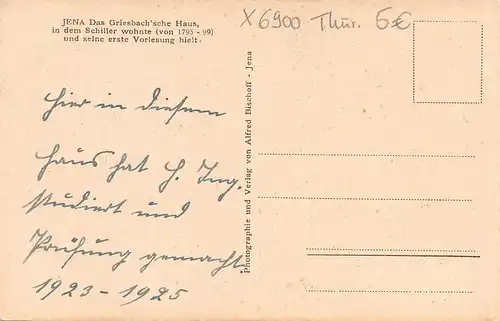 JENA Das Griesbach'sche Haus,
in dem Schiller wohnte (von 1795 - 99)
und seine erste Vorlesung hielt.
X 6900 Thür. 5€
Hier in diesem
Haus hat H. Ing.
studiert und
Prüfung gemacht.
1923 - 1925
Photographie und Verlag von Alfred Bischoff - Jena